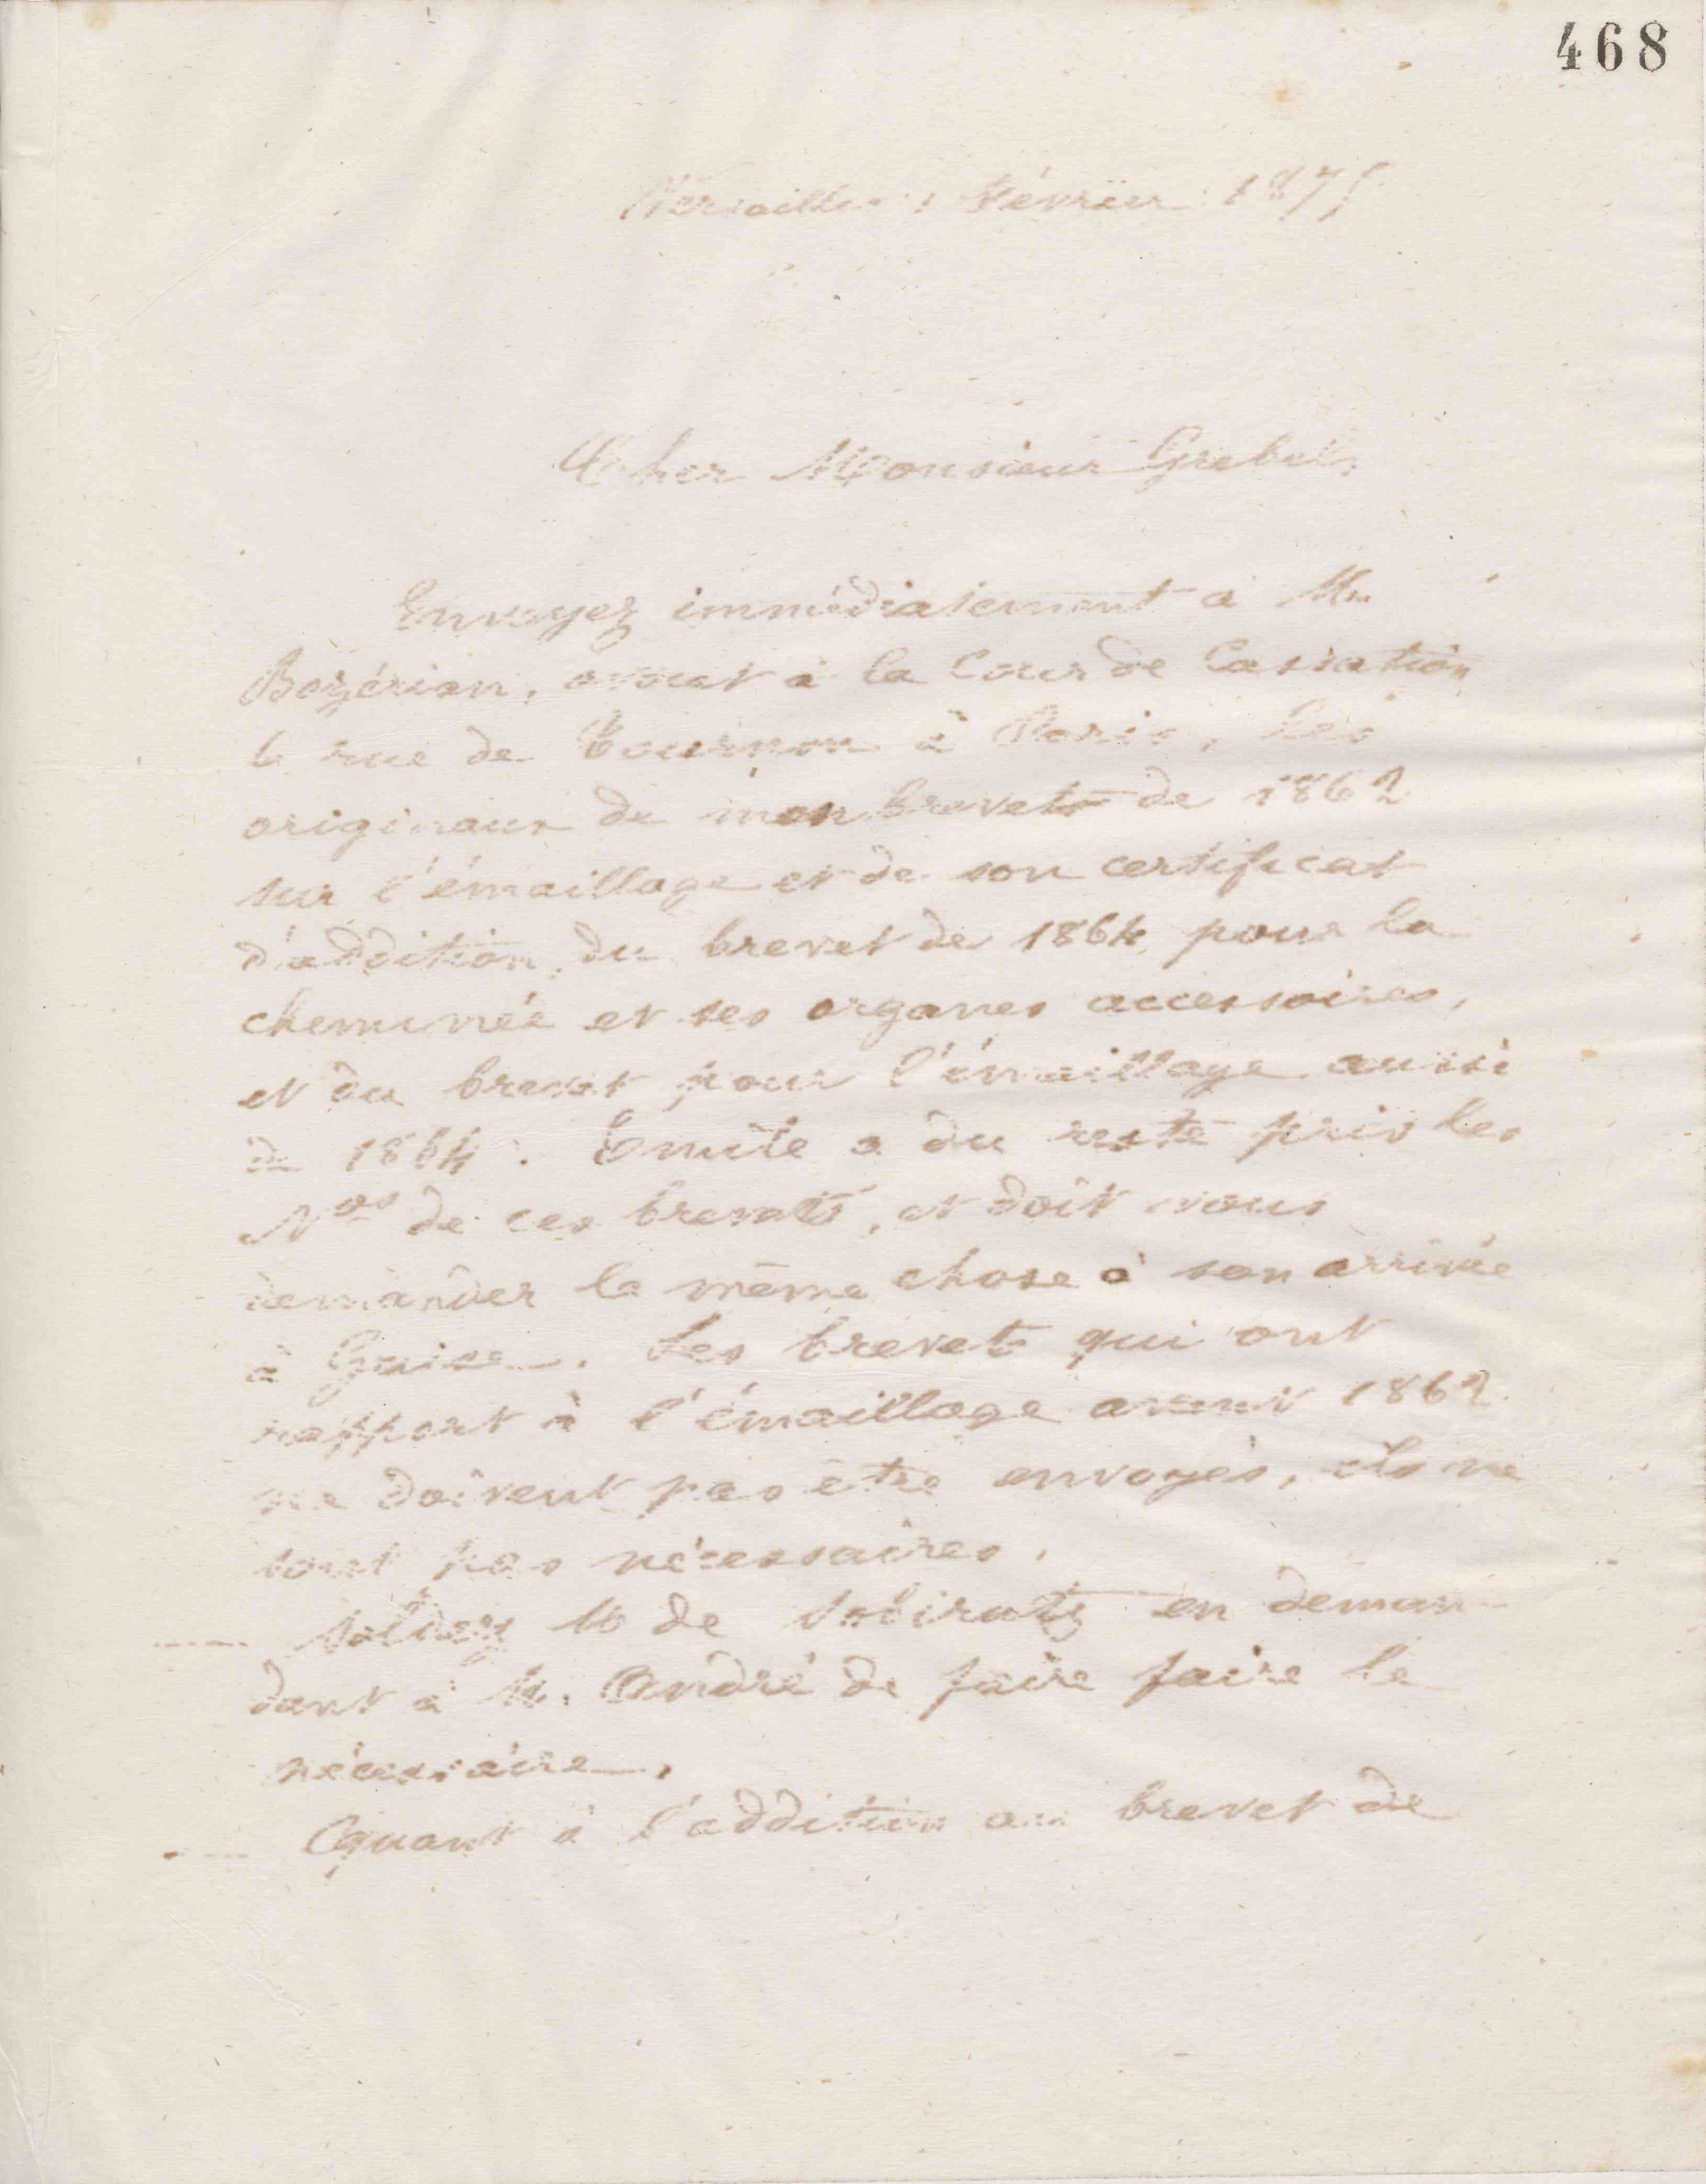 468
Versailles, Février 1875
Cher Monsieur Grebel,
Envoyez immédiatement à Mr
Bozérian, avocat à la Cour de Cassation
6 rue de Tournon à Paris, les
originaux de mon brevet de 1862
sur l'émaillage et de son certificat
d'addition, du brevet de 1864 pour la
cheminée et ses organes accessoires,
et du brevet pour l'émaillage aussi
de 1864. Emile a du reste pris les
Nos de ces brevets, et doit vous
demander la même chose à son arrivée
à Guise. Les brevets qui ont
rapport à l'émaillage avant 1862
ne doivent pas être envoyés, ils ne
sont pas nécessaires.
M de en deman-
dant à M. André de faire faire le
nécessaire.
Quant à l'addition au brevet de